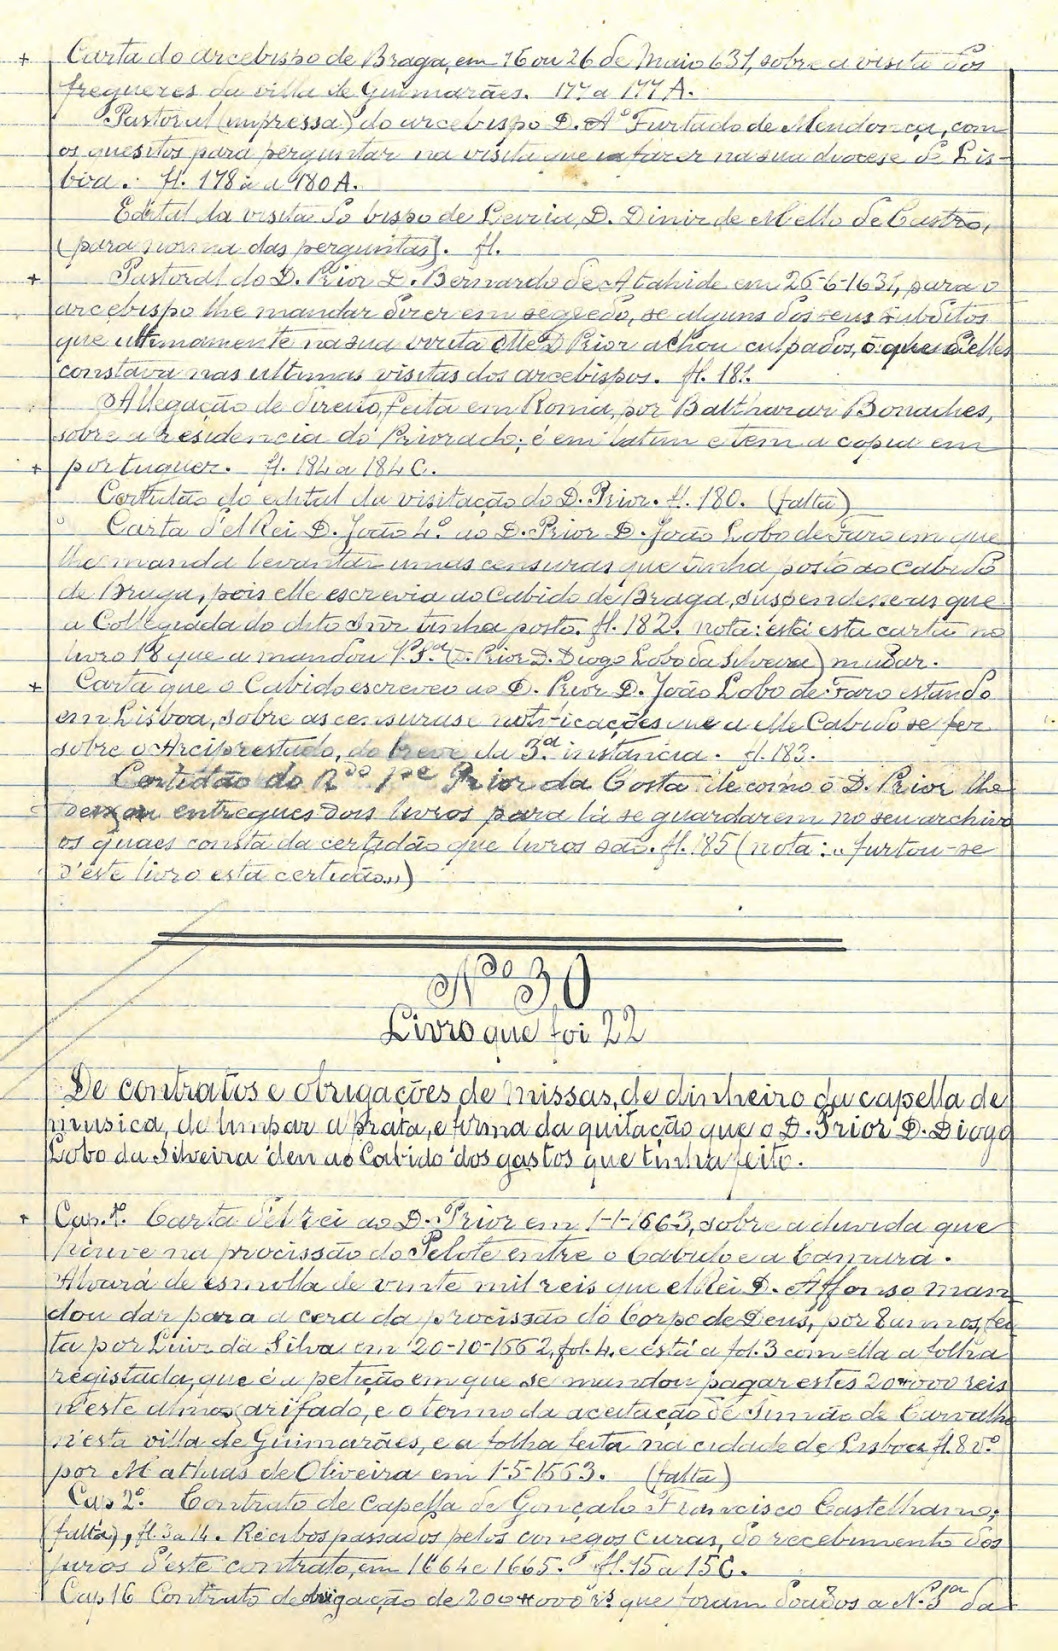 + Carta do arcebispo de Braga, em 16 ou 26 de Maio 631, sobre a visita dos
freguezes da villa de Guimarães. 177 a 177 A.
Pastoral (impressa) do arcebispo D. Aº Furtado de Mendonça, com
os quesitos para perguntar na visita que ia fazer na sua diocese de Lis-
boa. fl. 178 a 180 A.
Edital da visita do bispo de Leiria, D. Diniz de Mello de Castro,
(para norma das perguntas). fl.
+ Pastoral do D. Prior D. Bernardo de Atahide em 26-6-1631, para o
arcebispo lhe mandar dizer em segredo, se alguns dos seus subditos
que ultimamente na sua vizita elle D. Prior achou culpados, o que d'elles
constava nas ultimas visitas dos arcebispos. fl. 181.
Allegação de direito, feita em Roma, por Balthazar Bonaches,
sobre a residencia do Priorado; é em latim e tem a copia em
+ portuguez. fl. 184 a 184 C.
Certidão do edital da visitação do D. Prior. fl. 180. (falta)
Carta d'el Rei D. João 4º ao D. Prior D. João Lobo de Faro em que
lhe manda levantar umas censuras que tinha posto ao Cabido
de Braga, pois elle escrevia ao Cabido de Braga, suspendesse as que
a Collegiada do dito Snr tinha posto. fl. 182. nota: está esta carta no
livro 18 que a mandou (D. Prior D. Diogo Lobo da Silveira) mudar.
+ Carta que o Cabido escreveu ao D. Prior D. João Lobo de Faro estando
em Lisboa, sobre as censuras e notificações que a elle Cabido se fez
sobre o Arciprestado, do breve da 3ª instancia. fl. 183.
Certidão do Rdo Pe Prior da Costa de como o D. Prior lhe
deixou entregues dois livros para lá se guardarem no seu archivo
os quaes consta da certidão que livros são. fl. 185 (nota: "furtou-se
d'este livro esta certidão")
Nº 30
Livro que foi 22
De contratos e obrigações de missas, de dinheiro da capella de
musica, de limpar a prata, e forma da quitação que o D. Prior D. Diogo
Lobo da Silveira deu ao Cabido dos gastos que tinha feito.
+ Cap. 1º. Carta d'el rei ao D. Prior em 1-1-1663, sobre a duvida que
houve na procissão do Pelote entre o Cabido e a Camara.
Alvará de esmolla de vinte mil reis que el Rei D. Affonso man-
dou dar para a cera da procissão do Corpo de Deus, por 8 annos, fei-
ta por Luiz da Silva em 20-10-1662, fol. 4, e está a fol. 3 com ella a folha
registada, que é a petição em que se mandou pagar estes 20#000 reis
n'este almoxarifado, e o termo da aceitação de Simão de Carvalho
n'esta villa de Guimarães, e a folha feita na cidade de Lisboa fl. 8 vº
por Mathias de Oliveira em 1-5-1663. (falta)
Cap 2º. Contrato de capella de Gonçalo Francisco Castelhano;
(falta), fl. 3 a 14. Recibos passados pelos conegos curas, do recebimento dos
juros d'este contrato, em 1664 e 1665. fl. 15 a 15 C.
Cap 16 Contrato de obrigação de 200#000 rs que foram doados a N. Srª da